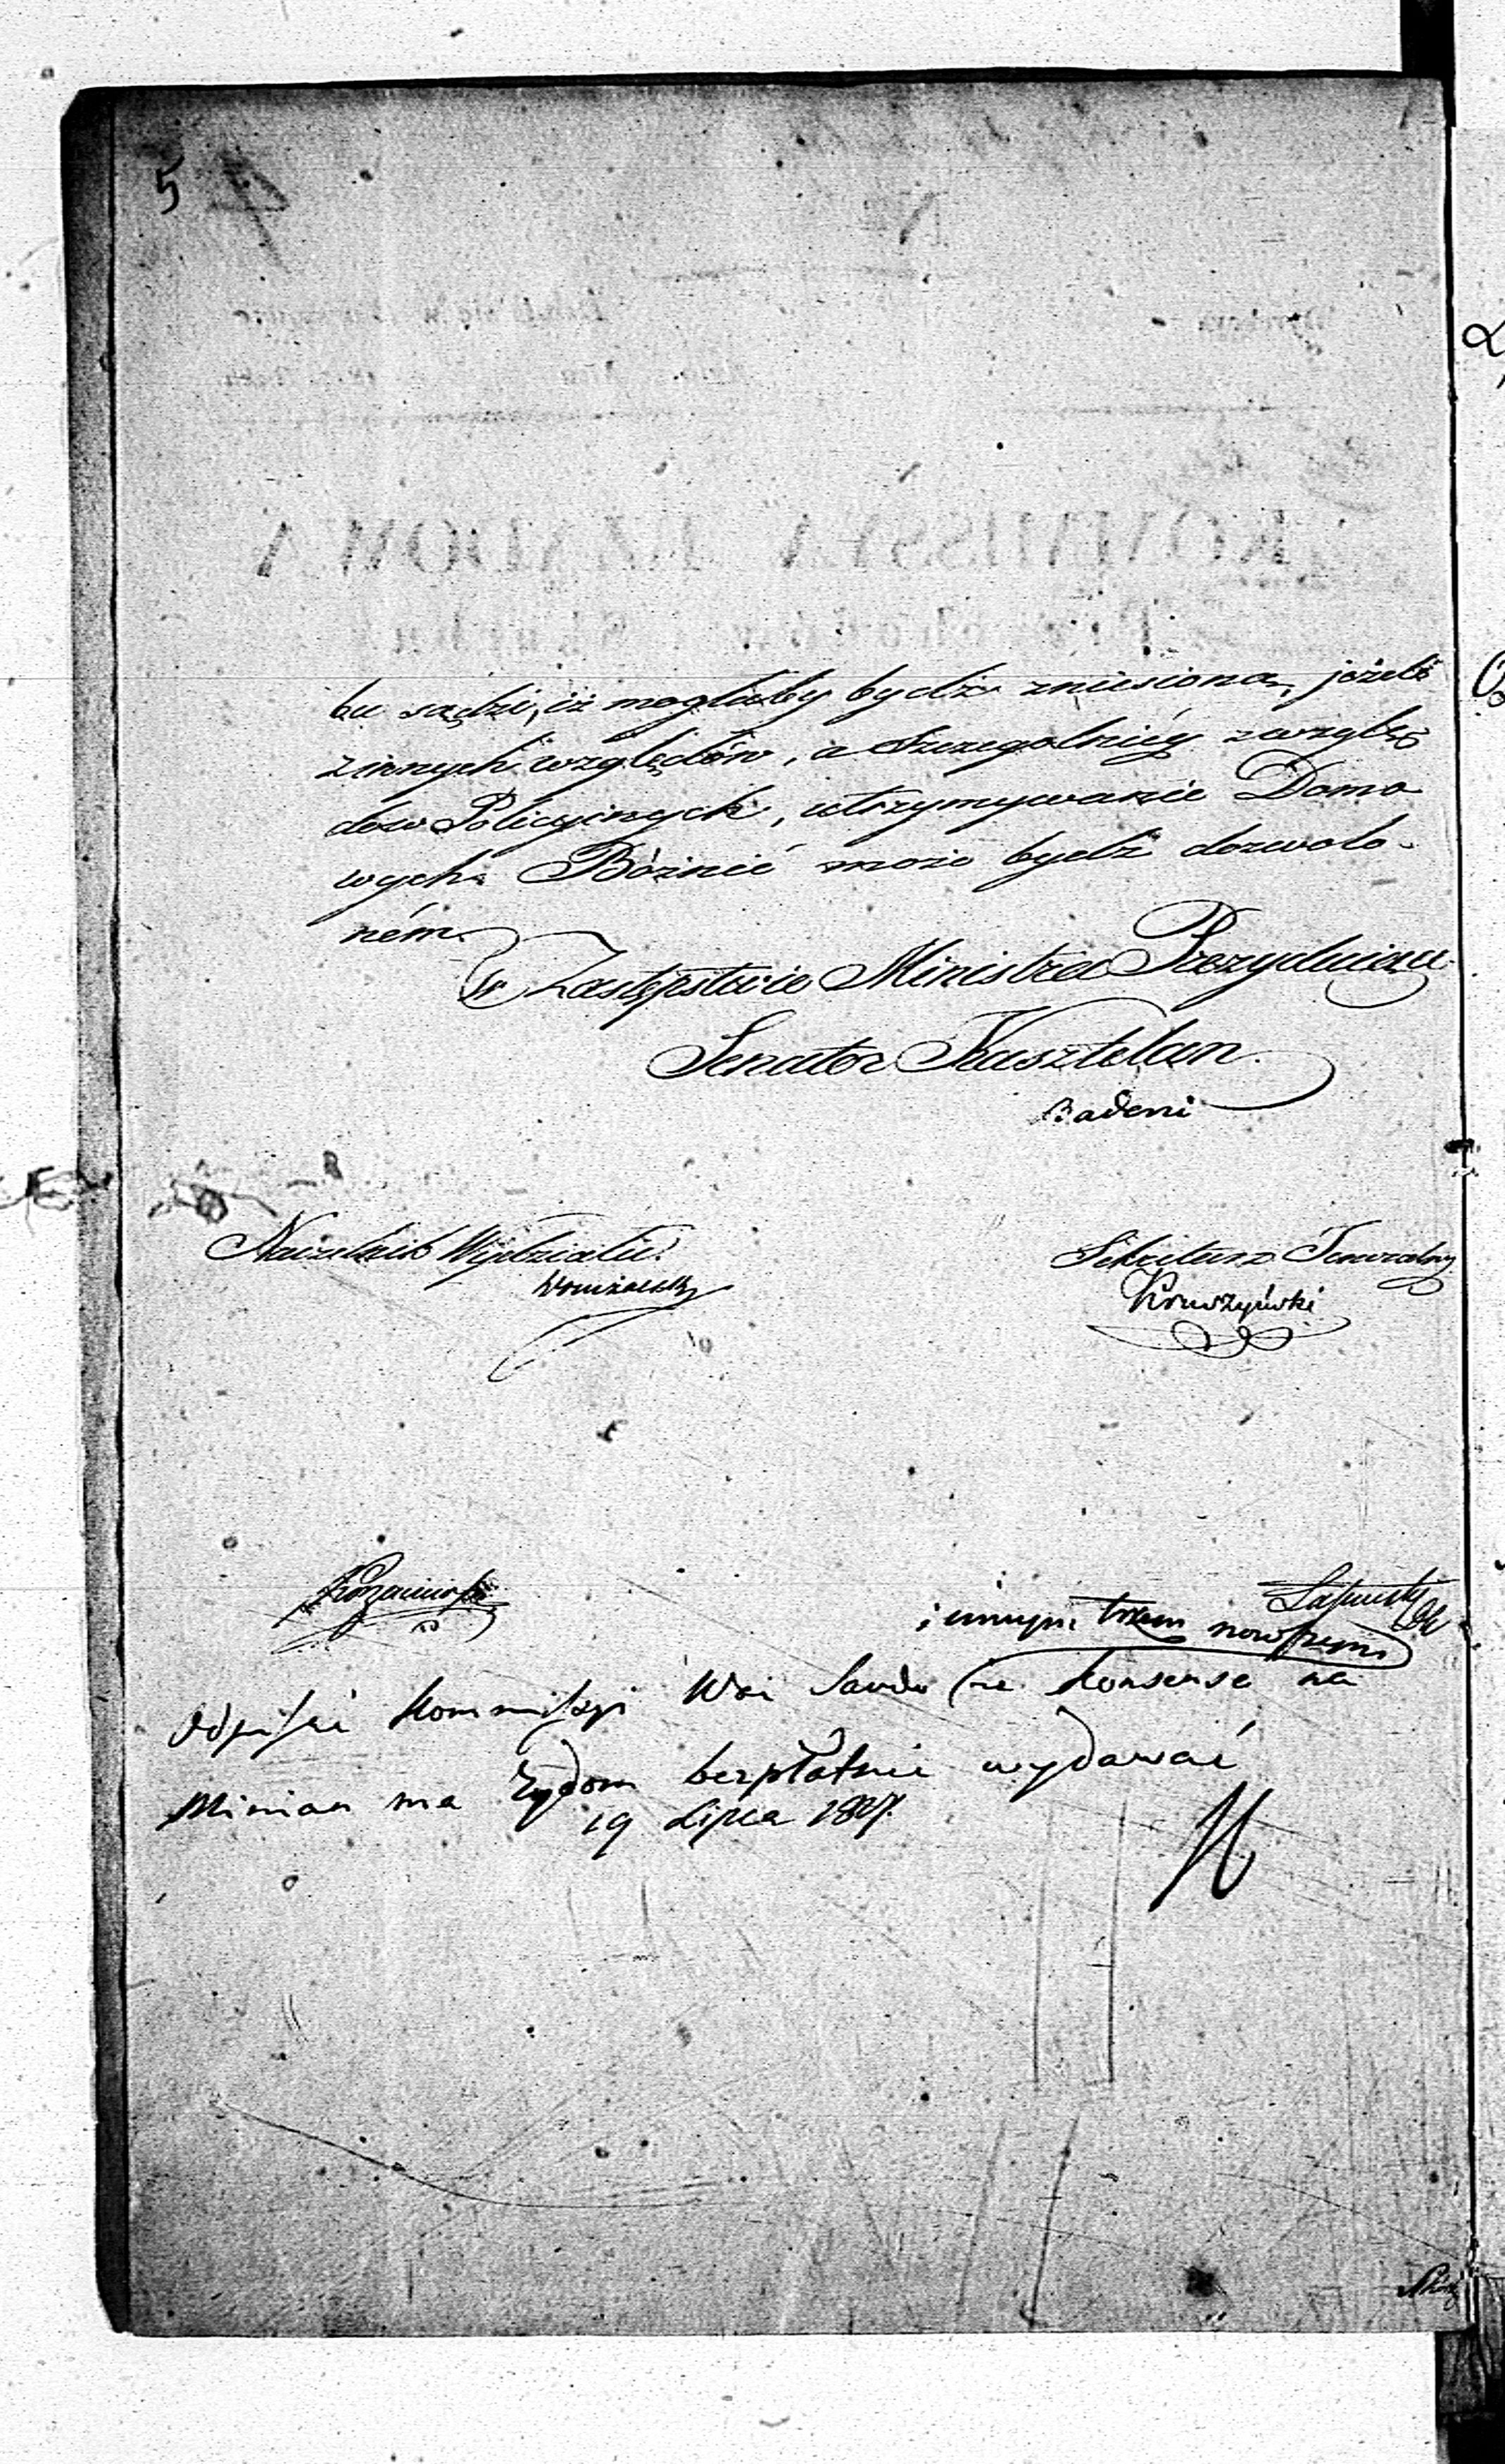 5
bu sądzi, iż mogłaby bydź zniesiona, jeżeli
z innych względów, a Szczegolniéy z wzglę-
dów Policyinych, utrzymywanie Domo
wych Bóżnic może bydź dozwolo-
ném.
W Zastępstwie Ministra Prezyduiącego
Senator Kasztelan
Badeni
Naczelnik Wydziału
Sekretarz Jeneralny
Kruszyński
i innym trzem
Odpisać Kommissyi Woi Sando że konsensa na
Minian ma Żydom bezpłatnie wydawać
19 Lipca 1827.